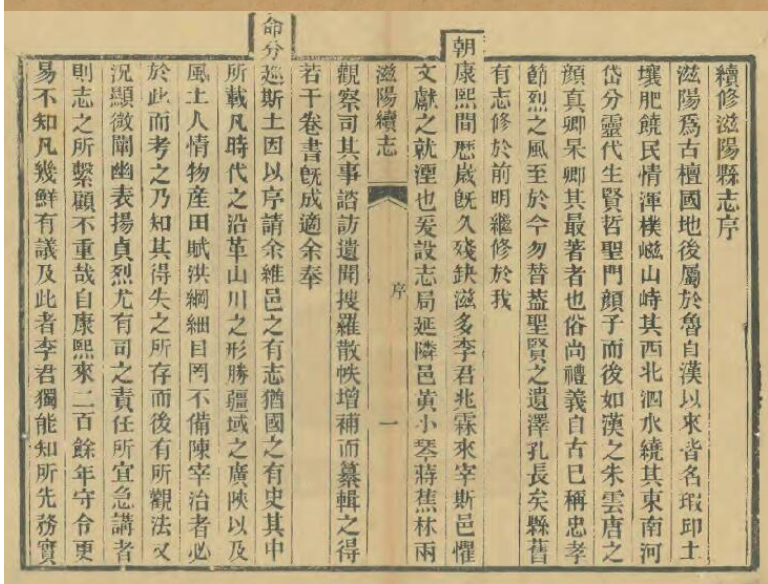 續修滋陽縣志序
滋陽爲古檀國地後屬於魯自漢以來皆名瑕邱土
壤肥饒民情渾樸嵫山峙其西北泗水繞其東南河
岱分靈代生賢哲聖門顏子而後如漢之朱雲唐之
顏真卿杲卿其最著者也俗尚禮義自古已稱忠孝
節烈之風至於今勿替葢聖賢之遺澤孔長矣縣舊
有志修於前明繼修於我
朝康熙間歷歲旣久殘缺滋多李君兆霖來宰斯邑懼
文獻之就湮也爰設志局延隣邑黃小琴蔣蕉林兩
滋陽續志
序
一
觀察司其事諮訪遺聞搜羅散帙增補而纂輯之得
若干卷書旣成適余奉
命分巡斯土因以序請余維邑之有志猶國之有史其中
所載凡時代之沿革山川之形勝疆域之廣陜以及
風土人情物產田賦洪綱細目罔不備陳宰治者必
於此而考之乃知其得失之所存而後有所觀法又
況顯微闡幽表揚貞烈尤有司之責任所宜急講者
則志之所繫顧不重哉自康熙來二百餘年守令更
易不知凡幾鮮有議及此者李君獨能知所先務實